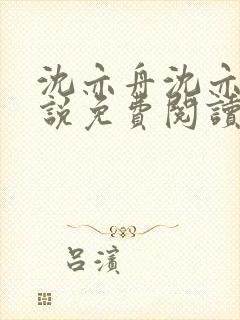 沈亦舟沈亦
說免費閱讀
呂濱